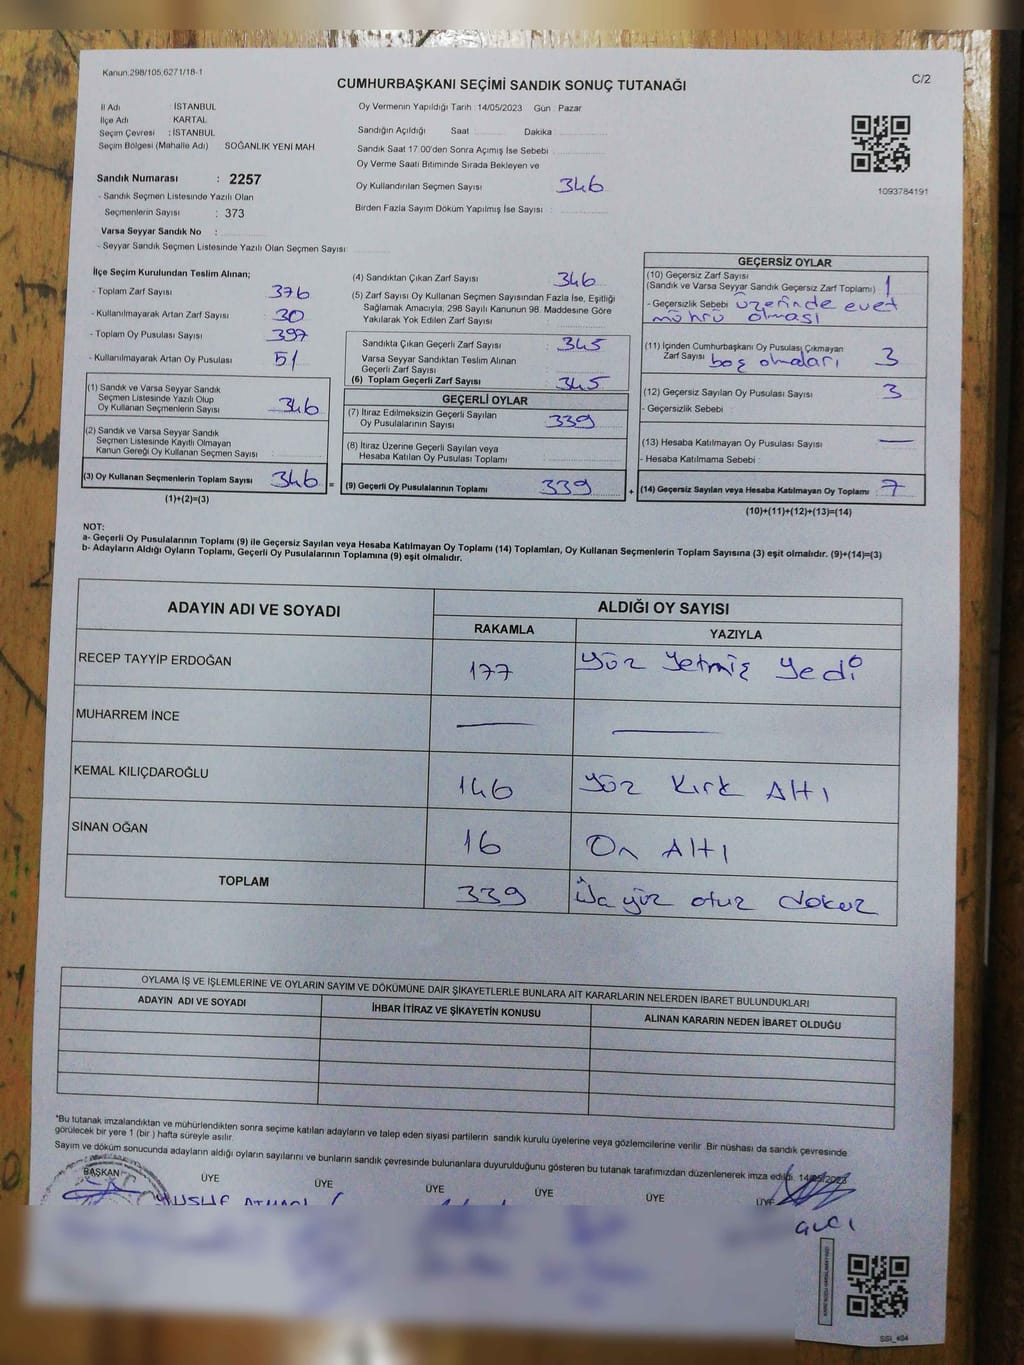 Kanun.298/105,6271/18-1
C/2
CUMHURBAŞKANI SEÇİMİ SANDIK SONUÇ TUTANAĞI
İl Adı : İSTANBUL
İlçe Adı : KARTAL
Seçim Çevresi : İSTANBUL
Seçim Bölgesi (Mahalle Adı) SOĞANLIK YENİ MAH
Sandık Numarası : 2257
- Sandık Seçmen Listesinde Yazılı Olan
Seçmenlerin Sayısı : 373
Varsa Seyyar Sandık No :
- Seyyar Sandık Seçmen Listesinde Yazılı Olan Seçmen Sayısı
Oy Vermenin Yapıldığı Tarih : 14/05/2023 Gün : Pazar
Sandığın Açıldığı Saat Dakika
Sandık Saat 17.00'den Sonra Açımış İse Sebebi
Oy Verme Saati Bitiminde Sırada Bekleyen ve
Oy Kullandırılan Seçmen Sayısı 346
Birden Fazla Sayım Döküm Yapılmış İse Sayısı :
1093784191
İlçe Seçim Kurulundan Teslim Alınan;
- Toplam Zarf Sayısı 376
- Kullanılmayarak Artan Zarf Sayısı 30
- Toplam Oy Pusulası Sayısı 397
- Kullanılmayarak Artan Oy Pusulası 51
(1) Sandık ve Varsa Seyyar Sandık
Seçmen Listesinde Yazılı Olup
Oy Kullanan Seçmenlerin Sayısı 346
(2) Sandık ve Varsa Seyyar Sandık
Seçmen Listesinde Kayıtlı Olmayan
Kanun Gereği Oy Kullanan Seçmen Sayısı
(3) Oy Kullanan Seçmenlerin Toplam Sayısı 346
(1)+(2)=(3)
(4) Sandıktan Çıkan Zarf Sayısı 346
(5) Zarf Sayısı Oy Kullanan Seçmen Sayısından Fazla İse, Eşitliği
Sağlamak Amacıyla; 298 Sayılı Kanunun 98. Maddesine Göre
Yakılarak Yok Edilen Zarf Sayısı
Sandıkta Çıkan Geçerli Zarf Sayısı : 345
Varsa Seyyar Sandıktan Teslim Alınan
Geçerli Zarf Sayısı
(6) Toplam Geçerli Zarf Sayısı 345
GEÇERLİ OYLAR
(7) İtiraz Edilmeksizin Geçerli Sayılan
Oy Pusulalarının Sayısı 339
(8) İtiraz Üzerine Geçerli Sayılan veya
Hesaba Katılan Oy Pusulası Toplamı
= (9) Geçerli Oy Pusulalarının Toplamı 339
GEÇERSİZ OYLAR
(10) Geçersiz Zarf Sayısı
(Sandık ve Varsa Seyyar Sandık Geçersiz Zarf Toplamı) 1
- Geçersizlik Sebebi üzerinde evet
mührü olması
(11) İçinden Cumhurbaşkanı Oy Pusulası Çıkmayan
Zarf Sayısı boş olmaları 3
(12) Geçersiz Sayılan Oy Pusulası Sayısı 3
- Geçersizlik Sebebi
(13) Hesaba Katılmayan Oy Pusulası Sayısı —
- Hesaba Katılmama Sebebi :
+ (14) Geçersiz Sayılan veya Hesaba Katılmayan Oy Toplamı : 7
(10)+(11)+(12)+(13)=(14)
NOT:
a- Geçerli Oy Pusulalarının Toplamı (9) ile Geçersiz Sayılan veya Hesaba Katılmayan Oy Toplamı (14) Toplamları, Oy Kullanan Seçmenlerin Toplam Sayısına (3) eşit olmalıdır. (9)+(14)=(3)
b- Adayların Aldığı Oyların Toplamı, Geçerli Oy Pusulalarının Toplamına (9) eşit olmalıdır.
ADAYIN ADI VE SOYADI ALDIĞI OY SAYISI
RAKAMLA YAZIYLA
RECEP TAYYİP ERDOĞAN 177 Yüz Yetmiş Yedi
MUHARREM İNCE — —
KEMAL KILIÇDAROĞLU 146 Yüz Kırk Altı
SİNAN OĞAN 16 On Altı
TOPLAM 339 Üç yüz otuz dokuz
OYLAMA İŞ VE İŞLEMLERİNE VE OYLARIN SAYIM VE DÖKÜMÜNE DAİR ŞİKAYETLERLE BUNLARA AİT KARARLARIN NELERDEN İBARET BULUNDUKLARI
ADAYIN ADI VE SOYADI İHBAR İTİRAZ VE ŞİKAYETİN KONUSU ALINAN KARARIN NEDEN İBARET OLDUĞU
*Bu tutanak imzalandıktan ve mühürlendikten sonra seçime katılan adayların ve talep eden siyasi partilerin sandık kurulu üyelerine veya gözlemcilerine verilir. Bir nüshası da sandık çevresinde
görülecek bir yere 1 (bir) hafta süreyle asılır.
Sayım ve döküm sonucunda adayların aldığı oyların sayılarını ve bunların sandık çevresinde bulunanlara duyurulduğunu gösteren bu tutanak tarafımızdan düzenlenerek imza edildi. 14/05/2023
BAŞKAN ÜYE ÜYE ÜYE ÜYE ÜYE ÜYE
YUSUF
SSI_404